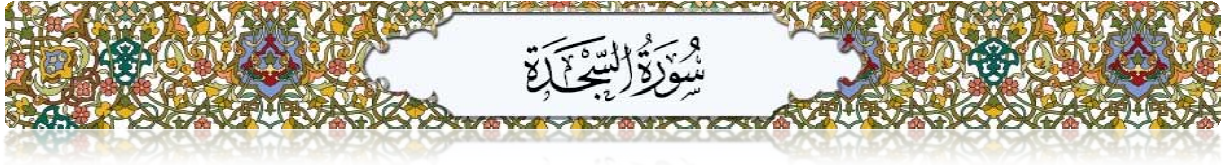 سُورَةُ السَّجْدَةِ